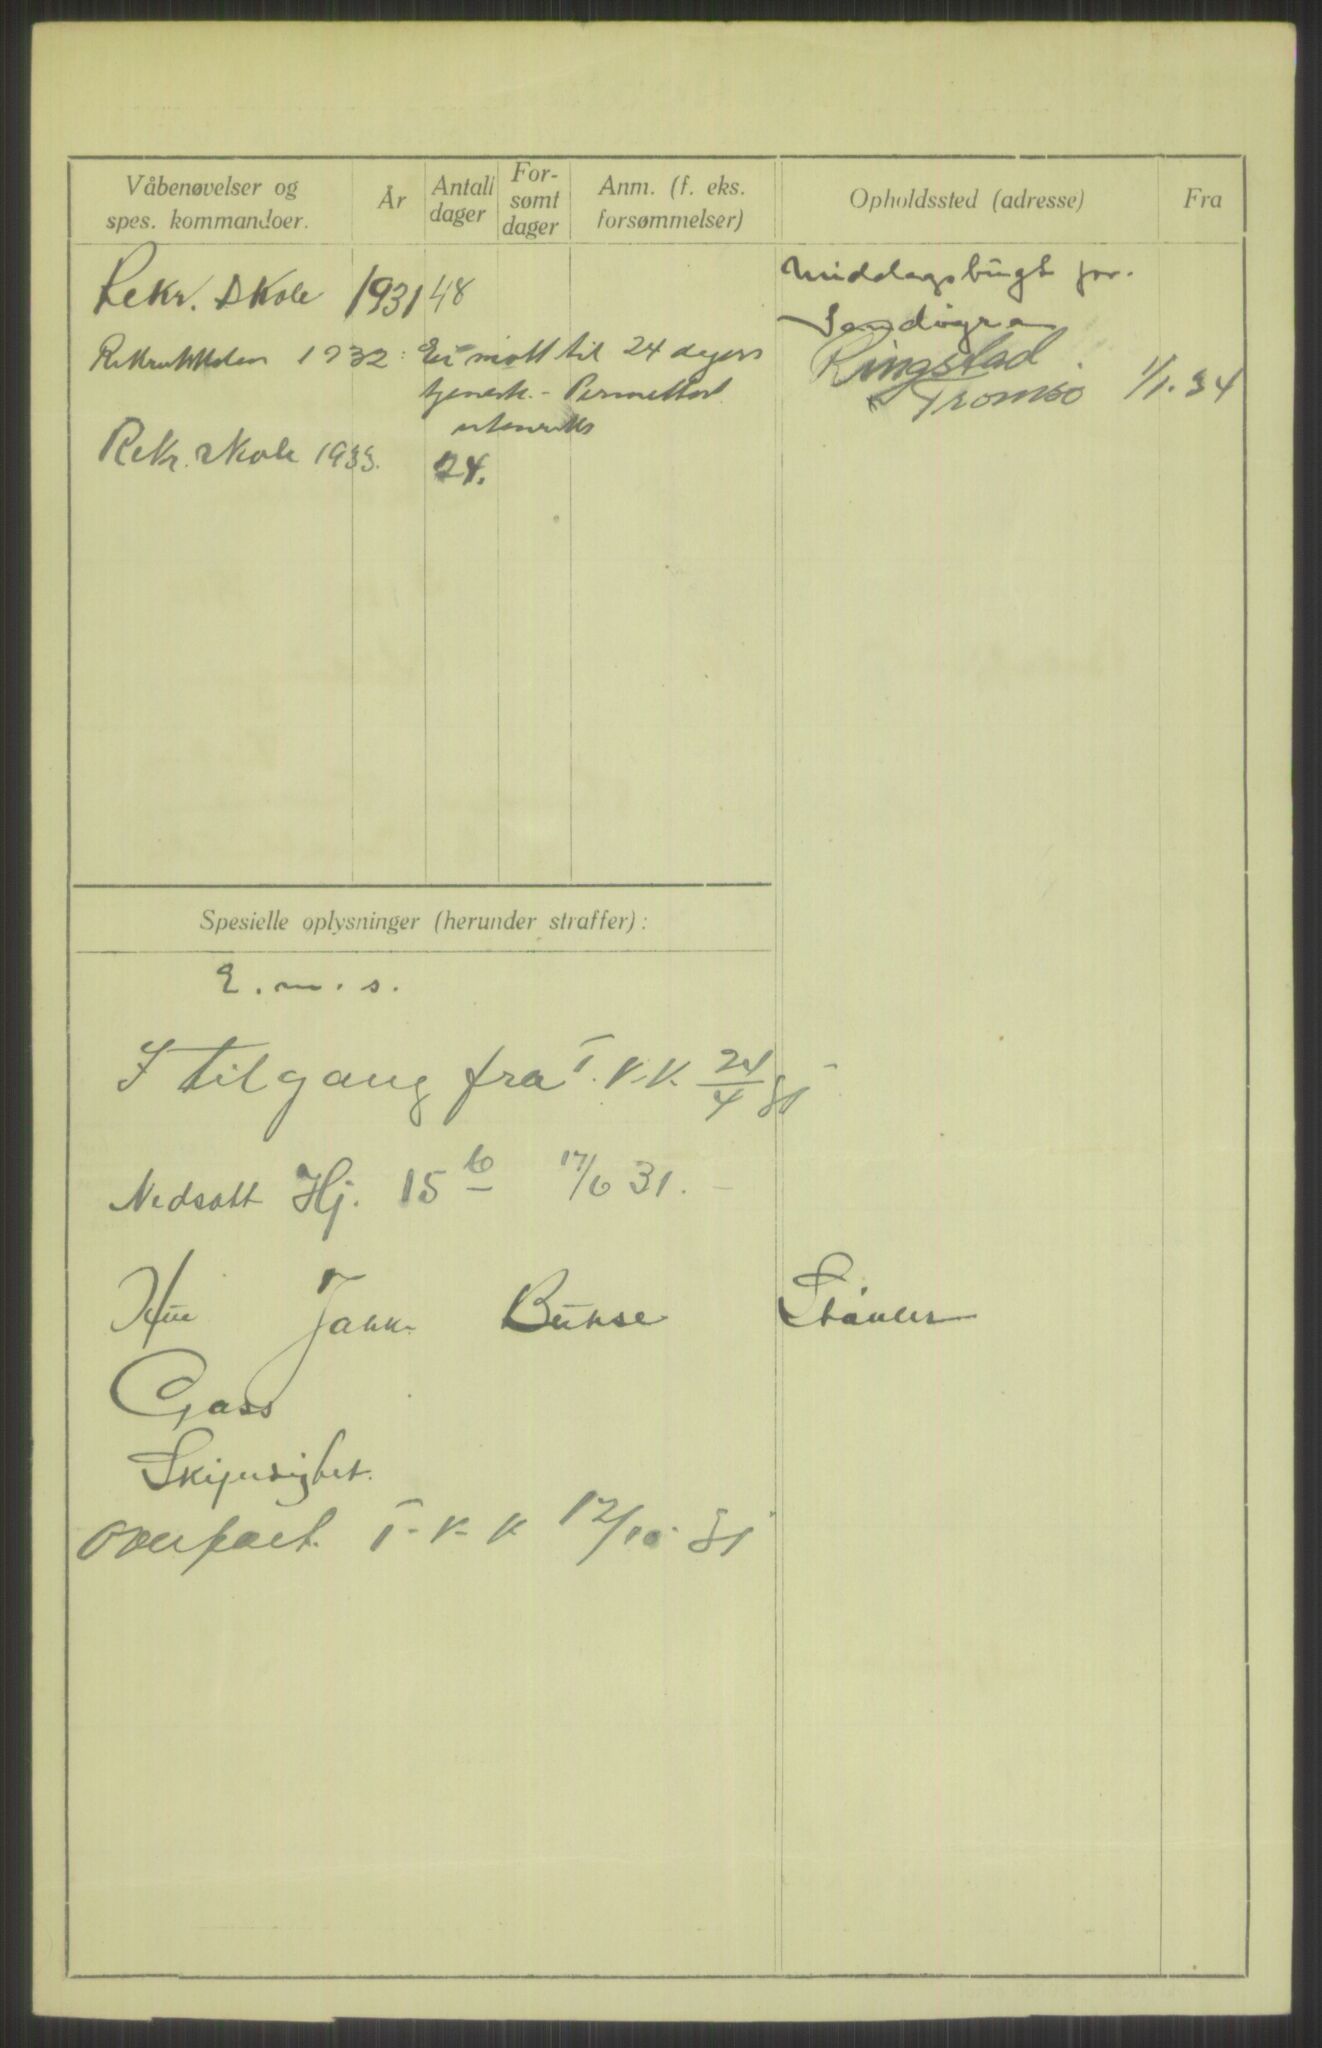 Våbenøvelser og spes. kommandoer.
År
Antall dager
For- sømt dager
Anm. (f. eks. forsømmelser)
Opholdssted (adresse)
Fra
Rekr. skole 1931 48
Middagsbugt pr.
Rekruttskolen 1932: Ei møtt til 24 dagers
tjeneste. - Permittert
utenriks
Ringstad
Tromsø 1/1. 34
Rekr. skole 1933. 24.
Spesielle oplysninger (herunder straffer):
E. m. s.
I tilgang fra I. K.K. 24/4 31
Nedsatt Hj. 15 17/6 31.
Hue Jakke Bukse Støvler
Gass
Skipudighet.
Overført I. K. K 12/10 31